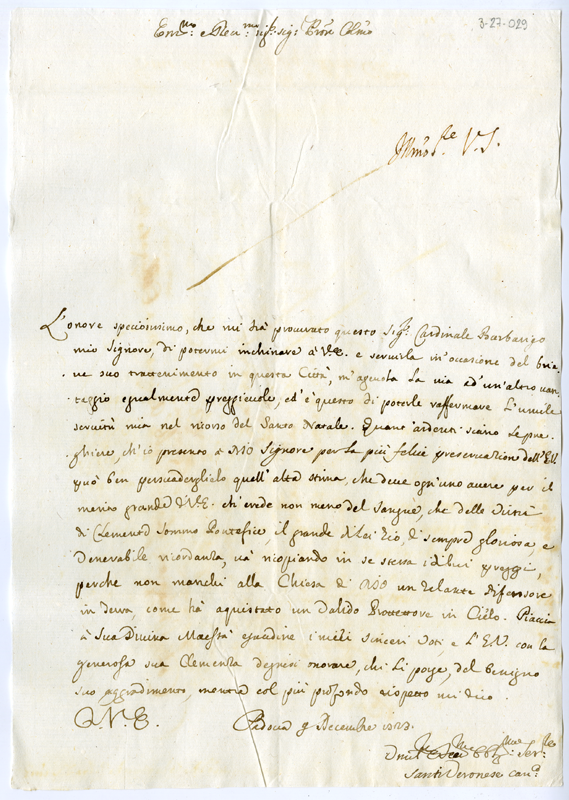 3-27-029
Em.mo e Rev.mo sig.r sig.r Pron Colmo
Illmo V. S.
L'onore speciosissimo, che mi hà procurato questo Sig.r Cardinale Barbarigo
mio Signore, di potermi inchinare à V.E. e servirla in ocasione del brie-
ve suo trattenimento in questa Città, m'aposta la via ad un'altro van-
taggio egualmente preggievole, ed è questo di poterle raffermare l'umile
servitù mia nel ricorso del Santo Natale. Quanto ardenti siano le pre-
ghiere, ch'io presento à NRO Signore per la più felice preservazion dell'E.V.
può ben persuaderglielo quell'alta stima, che deve ogn'uno avere per il
merito grande di V.E. ch'erede non meno del sangue, che delle Virtù
di Clemente Sommo Pontefice, il grande di lei Zio, di sempre gloriosa, e
Venerabile ricordanza, và ricopiando in se stessa i di lui preggi,
perche non manchi alla Chiesa di un Zelante difensore
in terra come hà aquistato un Valido Protettore in Cielo. Piaccia
à Sua Divina Maestà esaudire i miei sinceri Voti, e L'E.V. con la
generosa sua Clemenza degnisi onorare, chi Li porge, del benigno
suo aggradimento, mentre col più profondo rispetto mi dico
D.V.E.
Padova 9 Decembre 1723.
Santi Veronese can.o